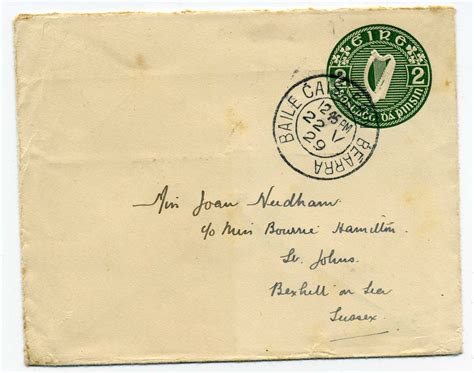 EIRE
2 2
dá pinsin
BAILE ĊA
BEARRA
12 45 PM
22 V
29
Miss Joan Needham.
c/o Miss Bourne Hamilton.
St. Johns.
Bexhill on Sea
Sussex.